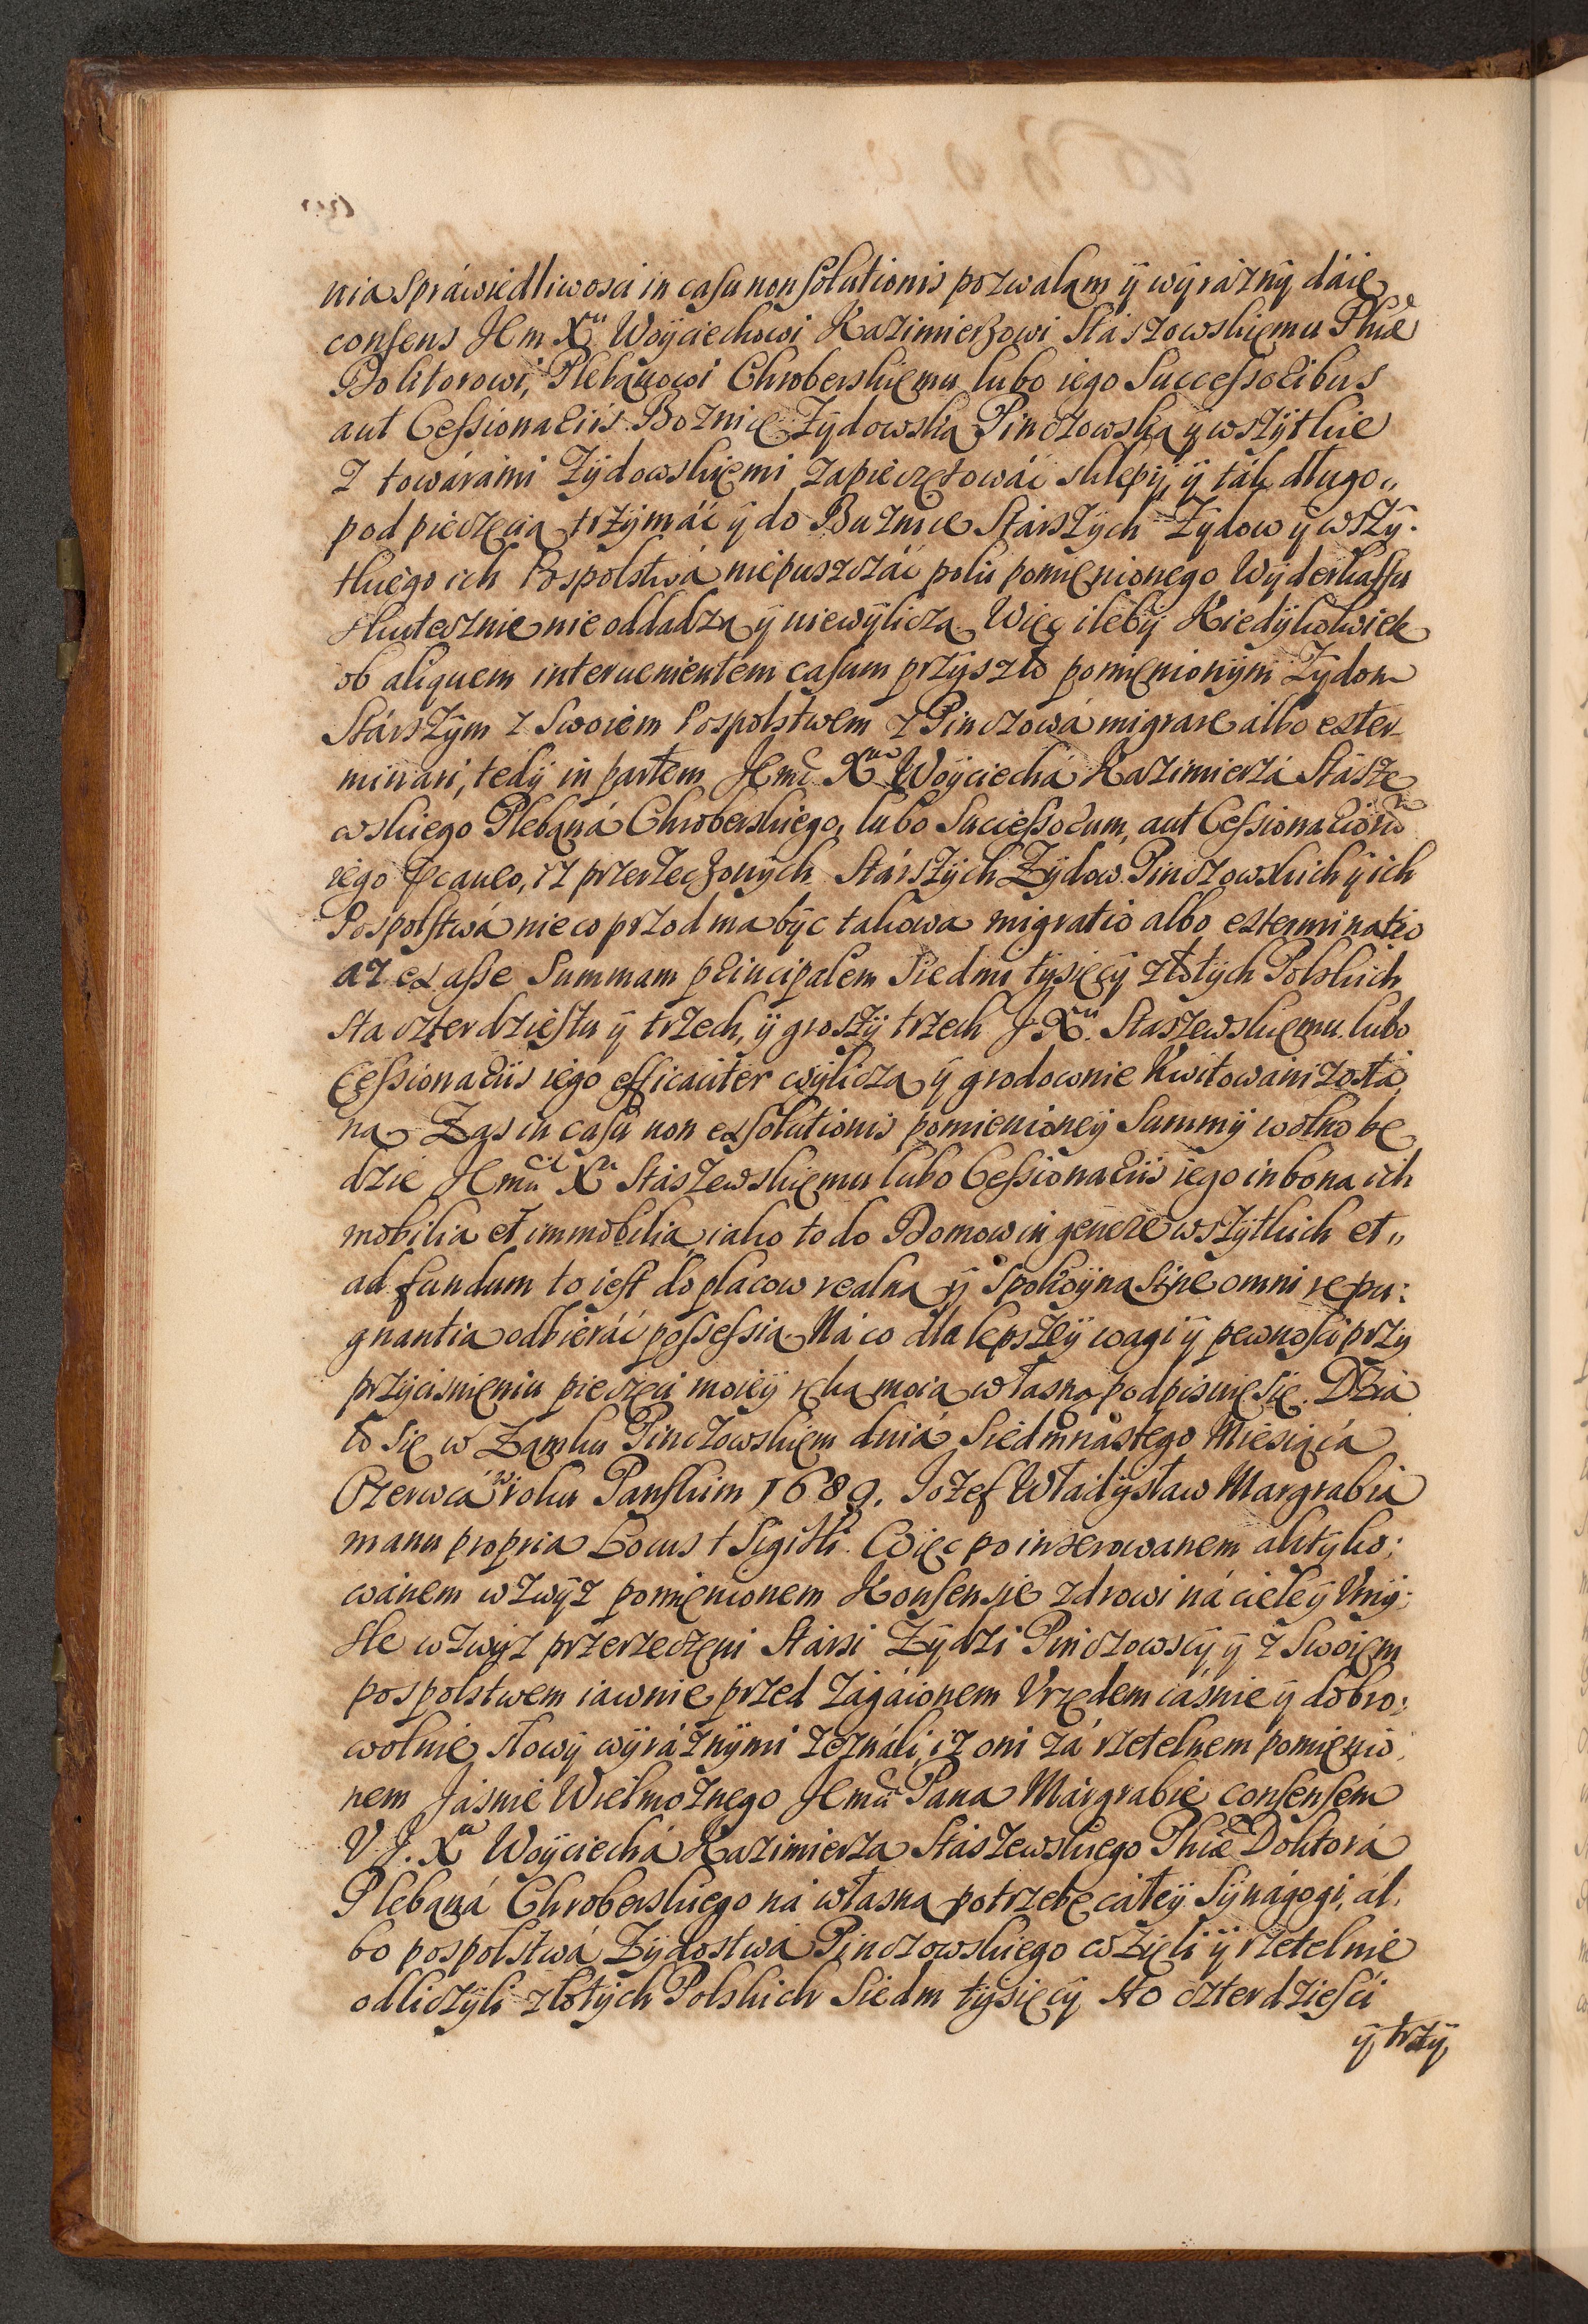 nia spráwiedliwosci in casu non solutionis pozwalam ÿ wÿráznÿ dáię
consens Jem Xu Woÿciechowi Kazimierzowi Stászowskiemu Phiæ
Doktorowi, Plebanowi Chroberskiemu lubo iego Successoribus
aut Cessionariis Boznicę Zÿdowską Pinczowską ÿ wszÿtkie
z towárámi Zÿdowskiemi zapieczętowáć sklepÿ, ÿ ták długo
pod pieczęcią trzÿmáć ÿ do Buznice Stárszÿch Zÿdow ÿ wszÿ:
tkiego ich Pospolstwá niepuszczáć poki pomięnionego Wÿderkaffu
skutecznie nie oddadzą ÿ niewÿliczą. Więc ilebÿ Kiedÿkolwiek
ob aliquem interuenientem casum przÿszło pomięnionÿm Zÿdom
Stárszÿm z Swoiem Pospolstwem z Pinczowá migrare álbo exter
minari, tedÿ in partem Jemci Xa Woÿciechá Kazimierzá Stásze
wskiego Plebaná Chroberskiego, lubo Successorum, aut Cessionariorũ
iego Pcaueo, iz przerzeczonÿch Stárszÿch Zÿdow Pinczowskich ÿ ich
Pospolstwá nie co przod ma bÿc takowa migratio albo exterminatio
az ex asse Summam principalem Siedmi tÿsięcÿ złotÿch Polskich
sta czterdziestu ÿ trzech, ÿ groszÿ trzech J Xu. Staszewskiemu lubo
Cessionariis iego efficaciter wÿliczą ÿ grodownie Kwitowani zostá
ną. Zas in casu non exsolutionis pomienioneÿ Summÿ wolno bę
dzie Jemci Xu Stászewskiemu lubo Cessionariis iego in bona ich
mobilia et immobilia, iako to do Domow in genere wszÿtkich et
ad fundum to iest do placow realną ÿ spokoÿną sine omni repu:
gnantia odbieráć possessią. Ná co dla lepszeÿ wagi ÿ pewnosci przÿ
przÿcisnięniu pieczęci moieÿ ręką moią własną podpisuię się. Dzia
ło się w Zamku Pinczowskiem dniá Siedmnástego Miesiącá
Czerwcá w roku Panskim 1689. Jozef Władÿsław Margrabia
manu propria Locus + Sigilli. Więc po inserowanem aktÿko:
wánem wzwÿz pomięnionem Konsensie zdrowi ná ciele ÿ Vmÿ:
sle wzwÿz przerzeczęni Stársi Zÿdzi Pinczowscÿ ÿ z Swoiem
pospolstwem iawnie przed zágáionem Vrzędem iásnie ÿ dobro:
wolnie słowÿ wÿráznÿmi zeználi, iz oni zá rzetelnem pomięnio
nem Jásnie Wielmoznego Jemci Pana Márgrabie consensem
V. J. Xa Woÿciechá Kazimierza Stászewskiego Phiæ Doktorá
Plebaná Chroberskiego ná własną potrzebę całeÿ Sÿnágogi, ál
bo pospolstwá Zÿdostwá Pinczowskiego wzięli ÿ rzetelnie
odliczÿli złotÿch Polskich Siedm tÿsięcÿ sto czterdziesci
ÿ trzÿ